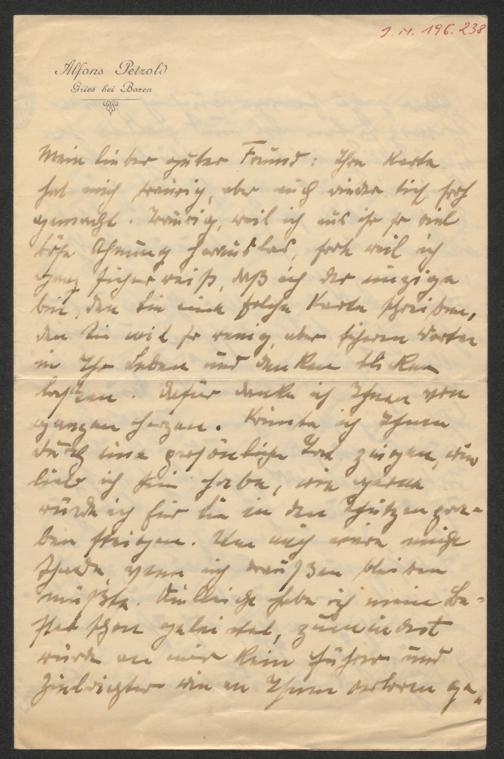 J. N. 196.238
Alfons Petzold
Gries bei Bozen
Mein lieber guter Freund: Ihre Karte
hat mich traurig, aber auch wieder tief froh
gemacht. Traurig, weil ich aus ihr so viel
böse Ahnung herauslas, froh weil ich
ganz sicher weiß, daß ich der einzige
bin, dem Sie eine solche Karte schreiben,
den Sie mit so wenig, aber schweren Worten
in Ihr Leben und denken blicken
lassen. Dafür danke ich Ihnen von
ganzem Herzen. Könnte ich Ihnen
durch eine persönliche Tat zeigen, wie
lieb ich Sie habe, wie gerne
würde ich für Sie in den Schützengra-
ben steigen. Um mich wäre nicht
Schade, wenn ich draußen bleiben
müßte. Vielleicht habe ich mein Be-
stes schon geleistet, zumindest
würde an mir kein Führer und
Zielrichter wie an Ihnen verloren ge-